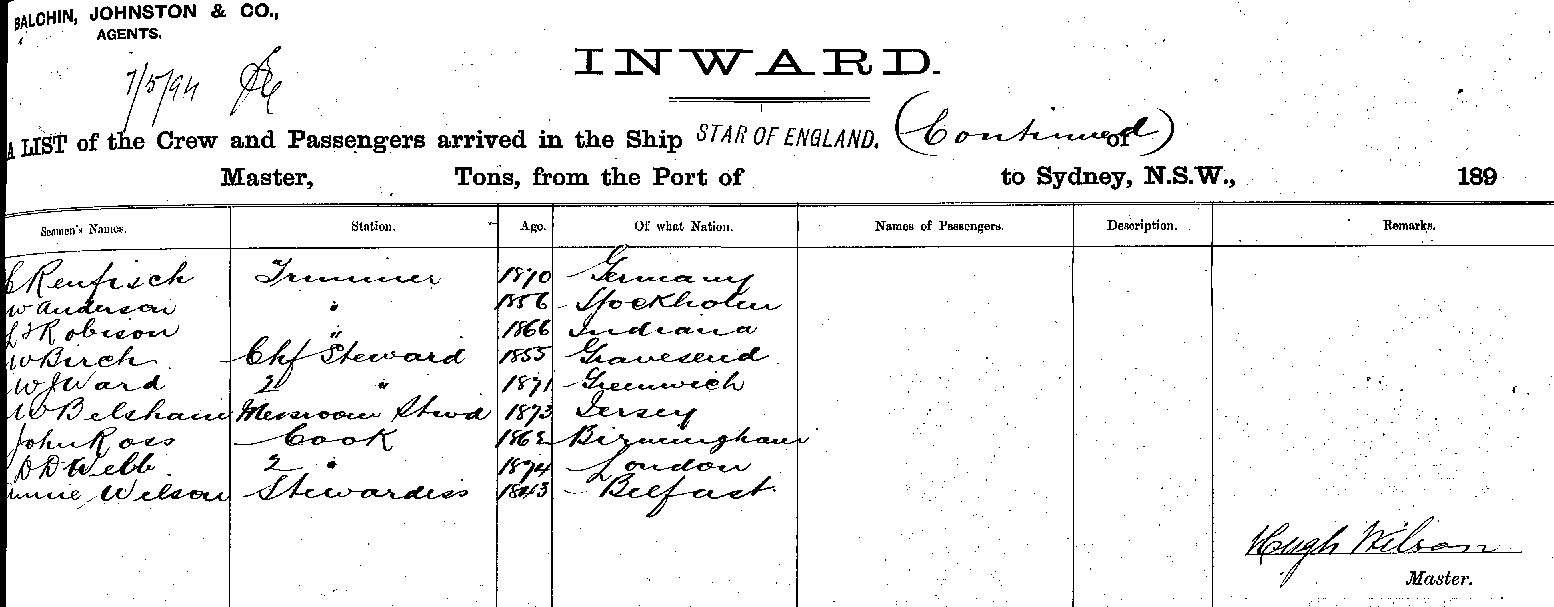 BALCHIN, JOHNSTON & CO.,
AGENTS.
7/5/94
INWARD.
A LIST of the Crew and Passengers arrived in the Ship STAR OF ENGLAND. (Continued) of
Master, Tons, from the Port of to Sydney, N.S.W., 189
Seamen's Names. Station. Age. Of what Nation. Names of Passengers. Description. Remarks.
Renfisch Trimmer 1870 Germany
W Anderson " 1856 Stockholm
Robison " 1866 Indiana
W Birch Chf Steward 1855 Gravesend
W J Ward 2 " 1871 Greenwich
W Belsham Messroom Stwd 1873 Jersey
John Ross Cook 1862 Birmingham
D D Webb 2 " 1874 London
Wilson Stewardess 1843 Belfast
Hugh Wilson
Master.